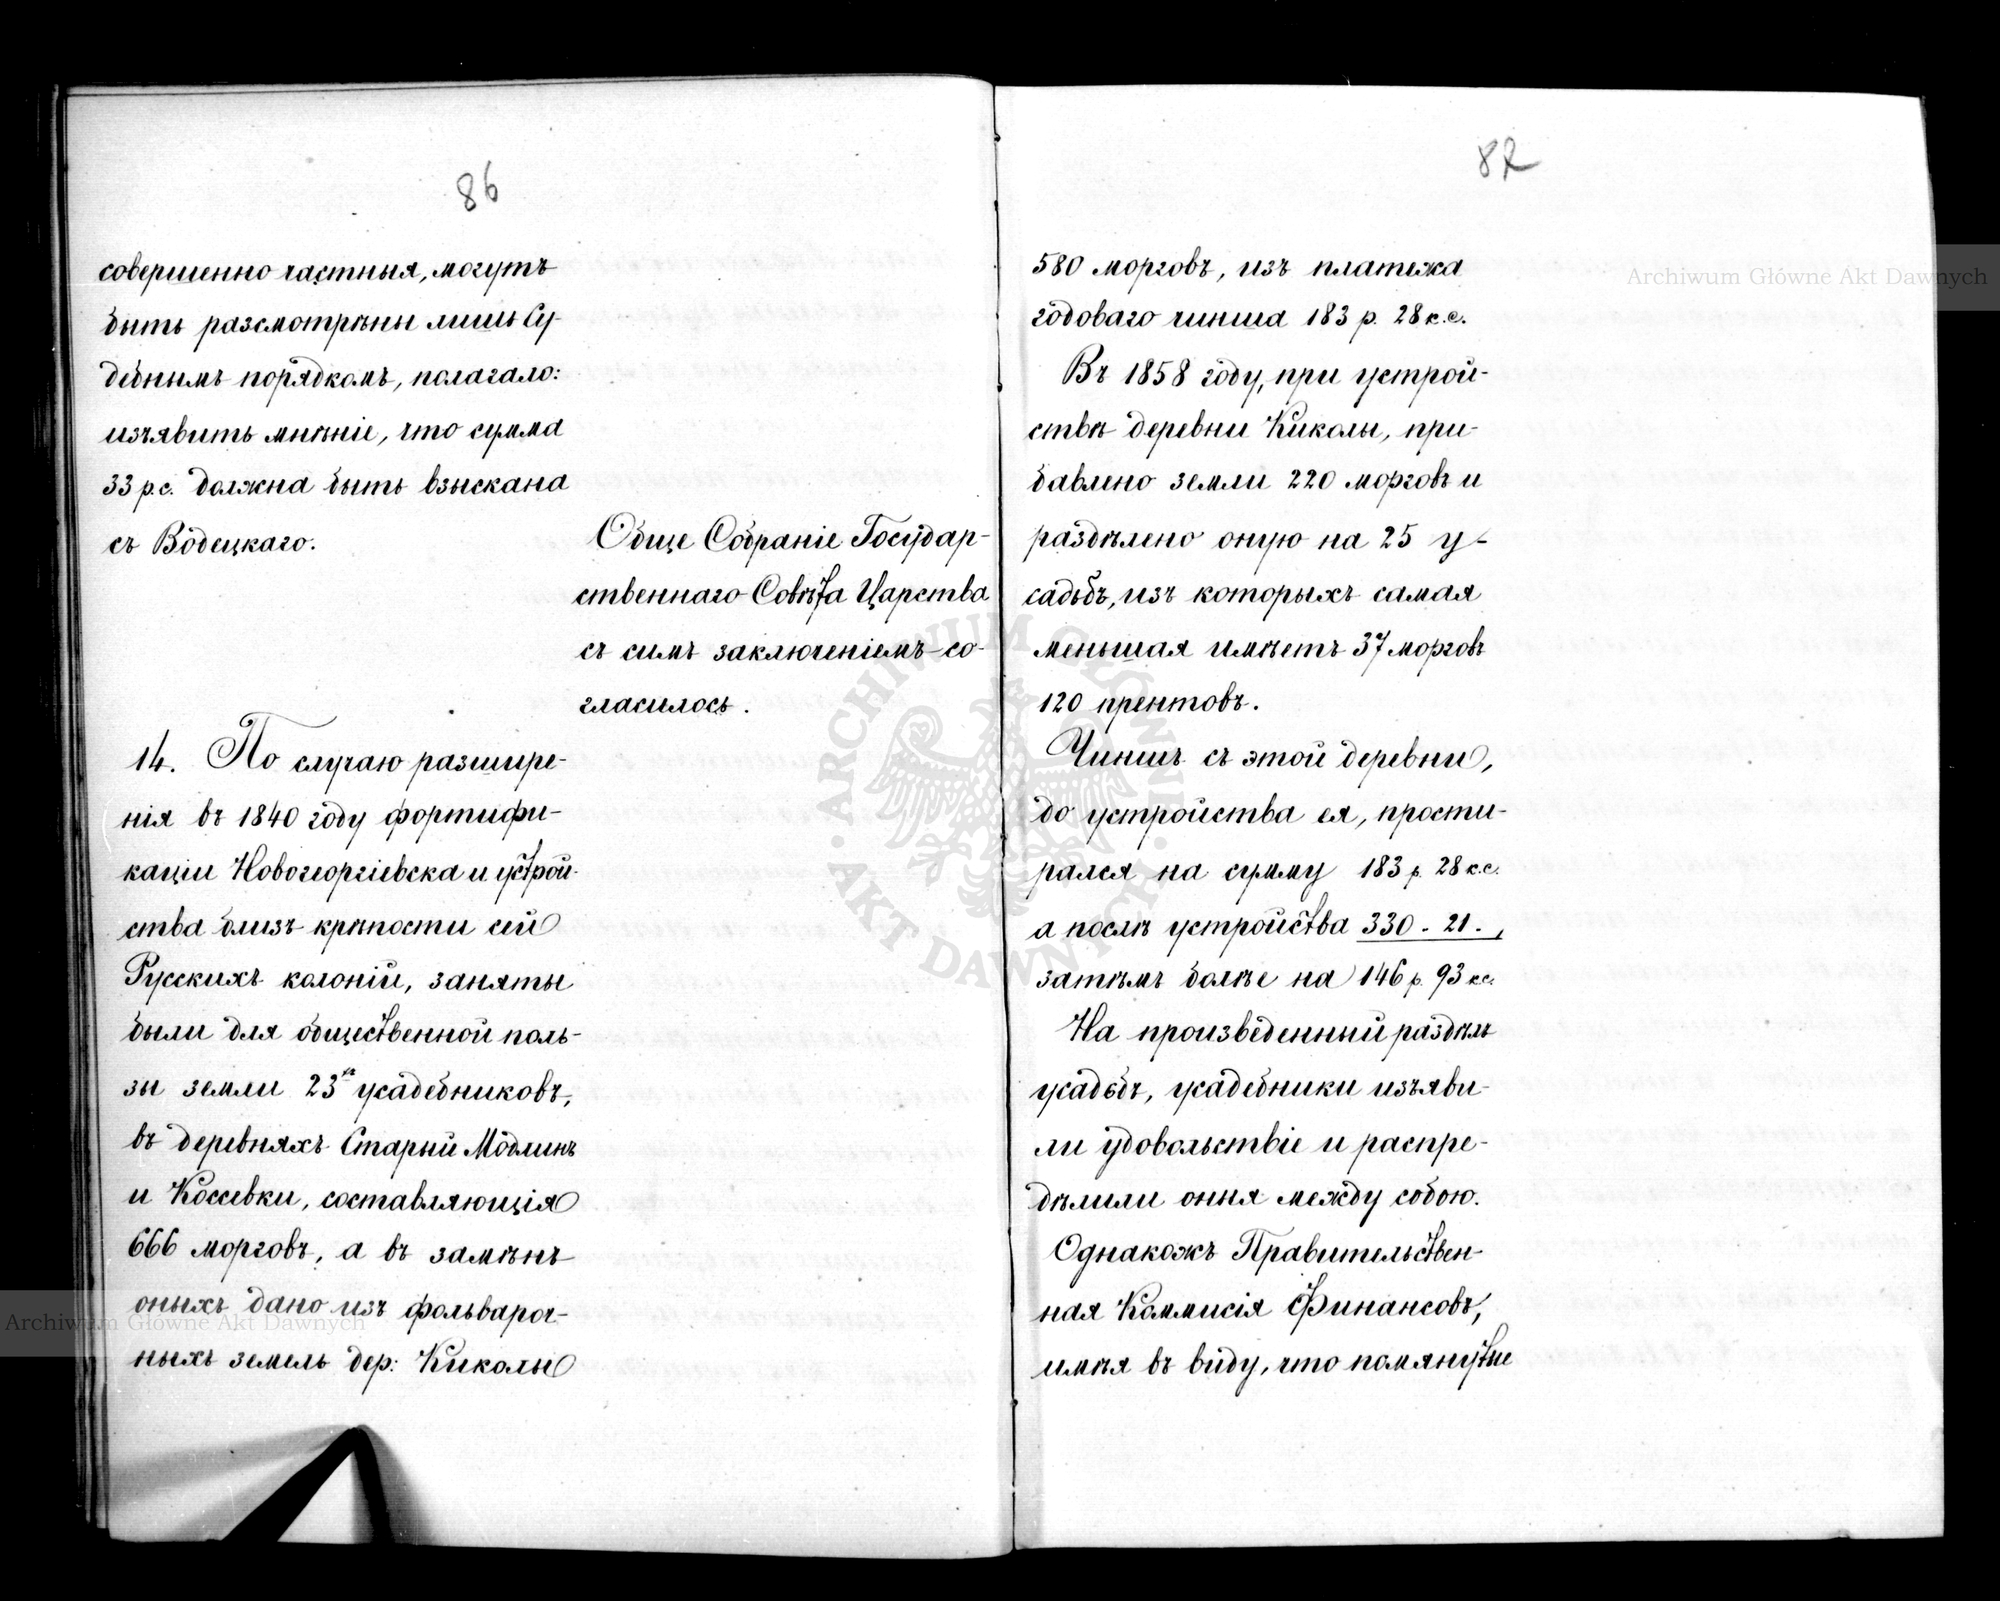 86
совершенно частныя, могутъ
быть разсмотрѣны лишь Су-
дебнымъ порядкомъ, полагало:
изъявить мнѣніе, что сумма
33 р.с. должна быть взыскана
съ Водецкаго.
Обще Собраніе Государ-
ственнаго Совѣта Царства
съ симъ заключеніемъ со-
гласилось.
14. По случаю разшире-
нія въ 1840 году фортифи-
каціи Новогеоргіевска и устрой-
ства близъ крѣпости сей
Русскихъ колоній, заняты
были для общественной поль-
зы земли 23хъ усадебниковъ,
въ деревняхъ Старый Модлинъ
и Коссевки, составляющія
666 морговъ, а въ замѣнъ
оныхъ дано изъ фольвароч-
ныхъ земель дер: Киколы
82
580 морговъ, изъ платежа
годоваго чинша 183 р. 28 к.с.
Въ 1858 году, при устрой-
ствѣ деревни Киколы, при-
бавлено земли 220 морговъ и
раздѣлено оную на 25 у-
садьбъ, изъ которыхъ самая
меньшая имѣетъ 37 морговъ
120 прентовъ.
Чиншъ съ этой деревни,
до устройства ея, прости-
рался на сумму 183 р. 28 к.с.
а послѣ устройства 330 - 21 - ,
затѣмъ болѣе на 146 р. 93 к.с.
На произведенный раздѣлъ
усадебъ, усадебники изъяви-
ли удовольствіе и распре-
дѣлили оныя между собою.
Однакожъ Правительствен-
ная Коммисія Финансовъ,
имѣя въ виду, что помянутые
Archiwum Główne Akt Dawnych
Archiwum Główne Akt Dawnych
ARCHIWUM GŁÓWNE AKT DAWNYCH